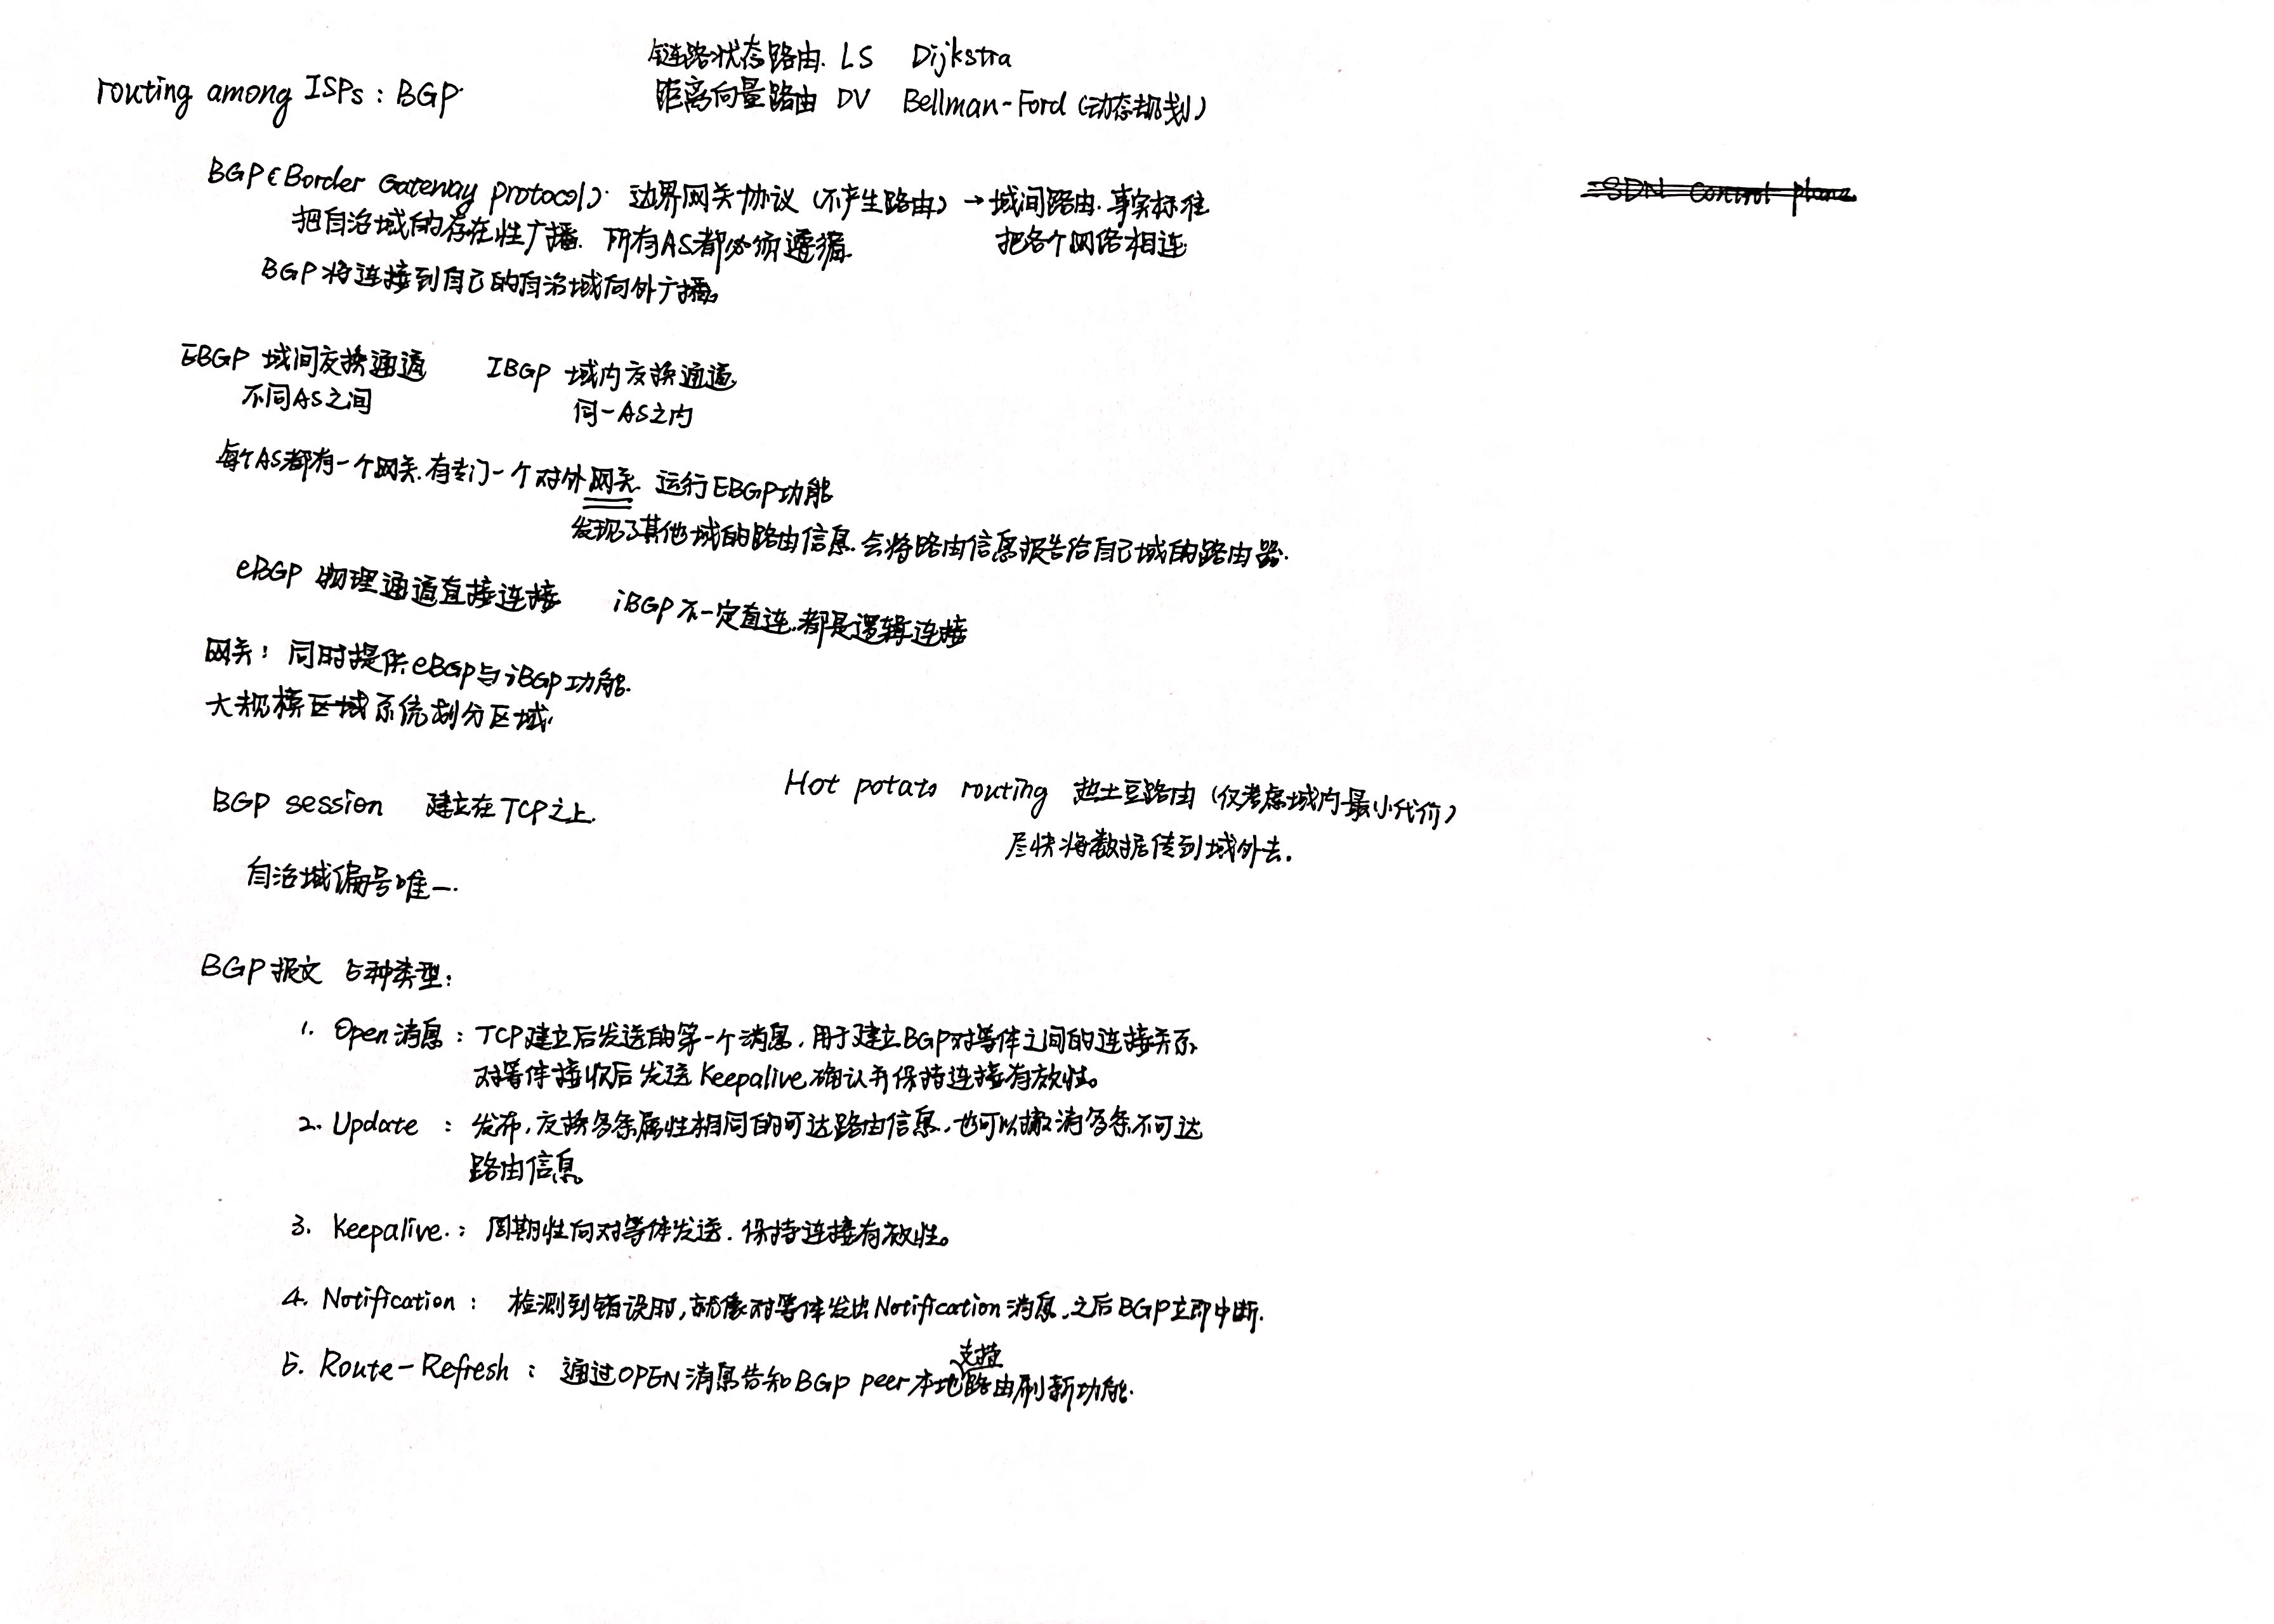 链路状态路由. LS Dijkstra
routing among ISPs : BGP
距离向量路由 DV Bellman-Ford (动态规划)
BGP (Border Gateway protocol) 边界网关协议 (不产生路由) → 域间路由. 事实标准
把自治域的存在性广播. 所有AS都必须遵循. 把各个网络相连
BGP将连接到自己的自治域向外广播。
SDN control plane
EBGP 域间交换通道 IBGP 域内交换通道
不同AS之间 同一AS之内
每个AS都有一个网关. 有专门一个对外网关. 运行EBGP功能
发现了其他域的路由信息. 会将路由信息报告给自己域的路由器.
eBGP 物理通道直接连接 iBGP 不一定直连. 都是逻辑连接
网关: 同时提供eBGP与iBGP功能.
大规模区域系统划分区域.
Hot potato routing 热土豆路由 (仅考虑域内最小代价)
BGP session 建立在TCP之上.
尽快将数据传到域外去.
自治域编号唯一.
BGP报文 5种类型:
1. Open消息: TCP建立后发送的第一个消息, 用于建立BGP对等体之间的连接关系
对等体接收后发送Keepalive确认并保持连接有效性。
2. Update : 发布, 交换多条属性相同的可达路由信息, 也可以撤消多条不可达
路由信息。
3. Keepalive. : 周期性向对等体发送. 保持连接有效性。
4. Notification : 检测到错误时, 就像对等体发出Notification消息. 之后BGP立即中断.
5. Route-Refresh : 通过OPEN消息告知BGP peer本地支持路由刷新功能.